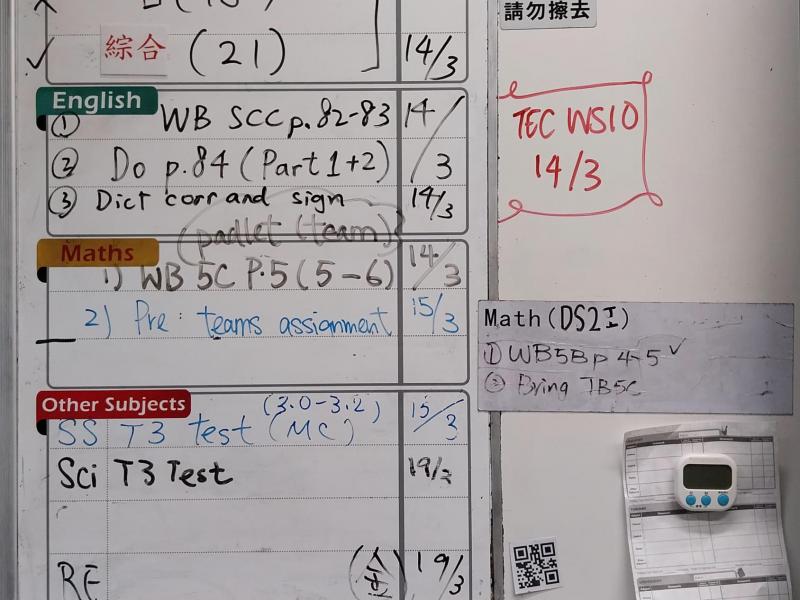 ✓ 綜合 (21) 14/3
English
① WB SCC p.82-83 14/3
② Do p.84 (Part 1+2)
③ Dict corr and sign 14/3
(padlet (team)
Maths
1) WB 5C P.5 (5-6) 14/3
2) Pre: teams assignment 15/3
Other Subjects
(3.0-3.2)
SS T3 Test (MC) 15/3
Sci T3 Test 19/3
RE 19/3
請勿擦去
TEC WS10
14/3
Math(DS2I)
① WB5B p 4-5 ✓
② Bring TB5C